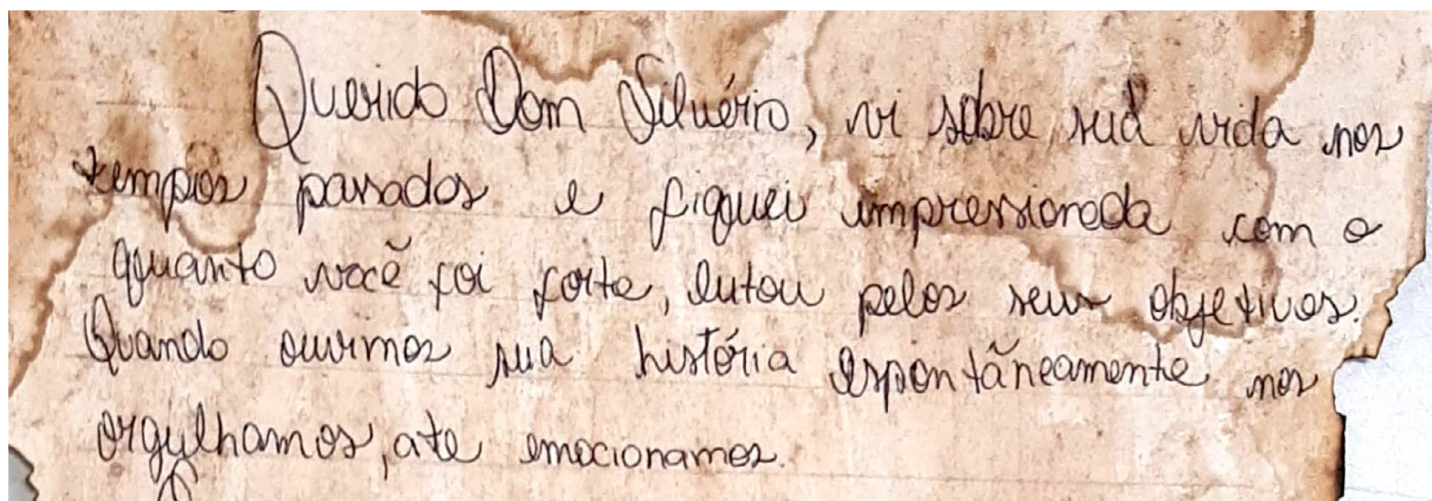 Querido Dom Silvério, vi sobre sua vida nos
tempos passados e fiquei impressionada com o
quanto você foi forte, lutou pelos seus objetivos.
Quando ouvimos sua história espontãneamente nos
orgulhamos, ate emocionamos.